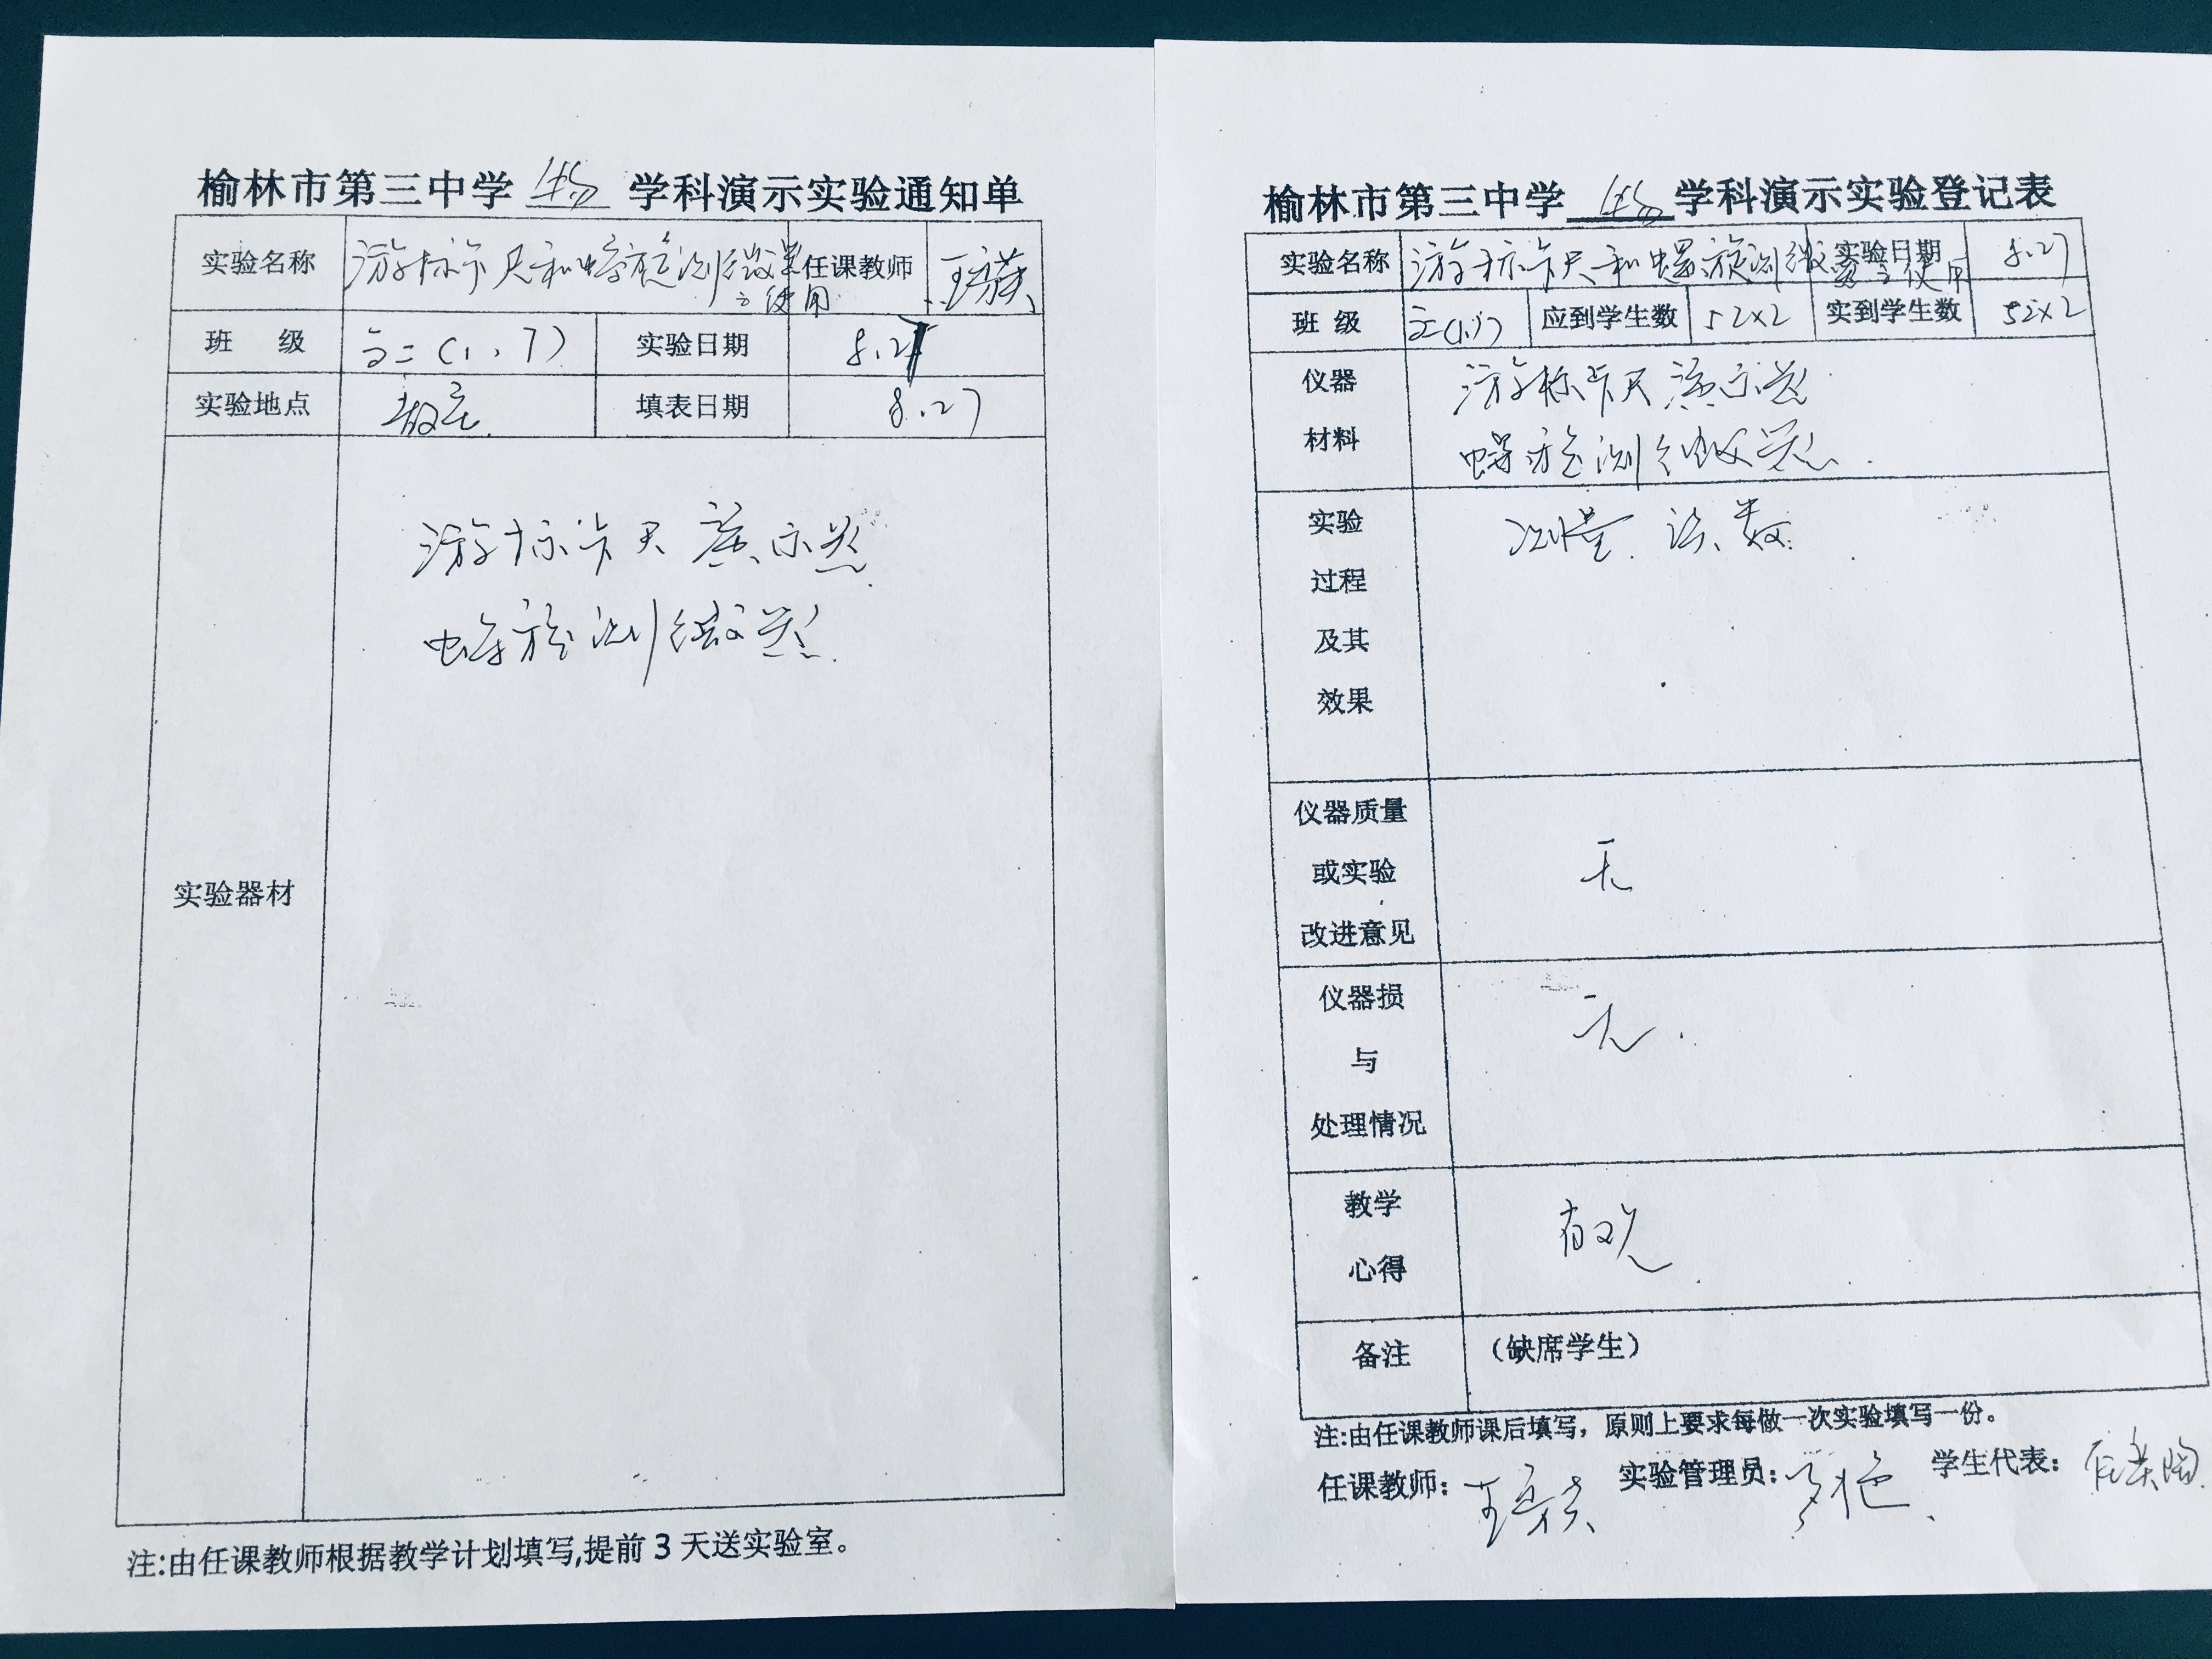 榆林市第三中学 学科演示实验通知单
实验名称 游标卡尺和螺旋测微器之使用 任课教师
班 级 高二（1、7） 实验日期 8.27
实验地点 教室 填表日期 8.27
实验器材
游标卡尺 演示器
螺旋测微器
注:由任课教师根据教学计划填写,提前3天送实验室。
榆林市第三中学 学科演示实验登记表
实验名称 游标卡尺和螺旋测微器之使用 实验日期 8.27
班 级 高二(1、7) 应到学生数 52×2 实到学生数 52×2
仪器
材料
游标卡尺演示器
螺旋测微器.
实验
过程
及其
效果
测量. 读数.
仪器质量
或实验
改进意见
无
仪器损
与
处理情况
无.
教学
心得
有效.
备注 （缺席学生）
注:由任课教师课后填写，原则上要求每做一次实验填写一份。
任课教师: 实验管理员: 学生代表: